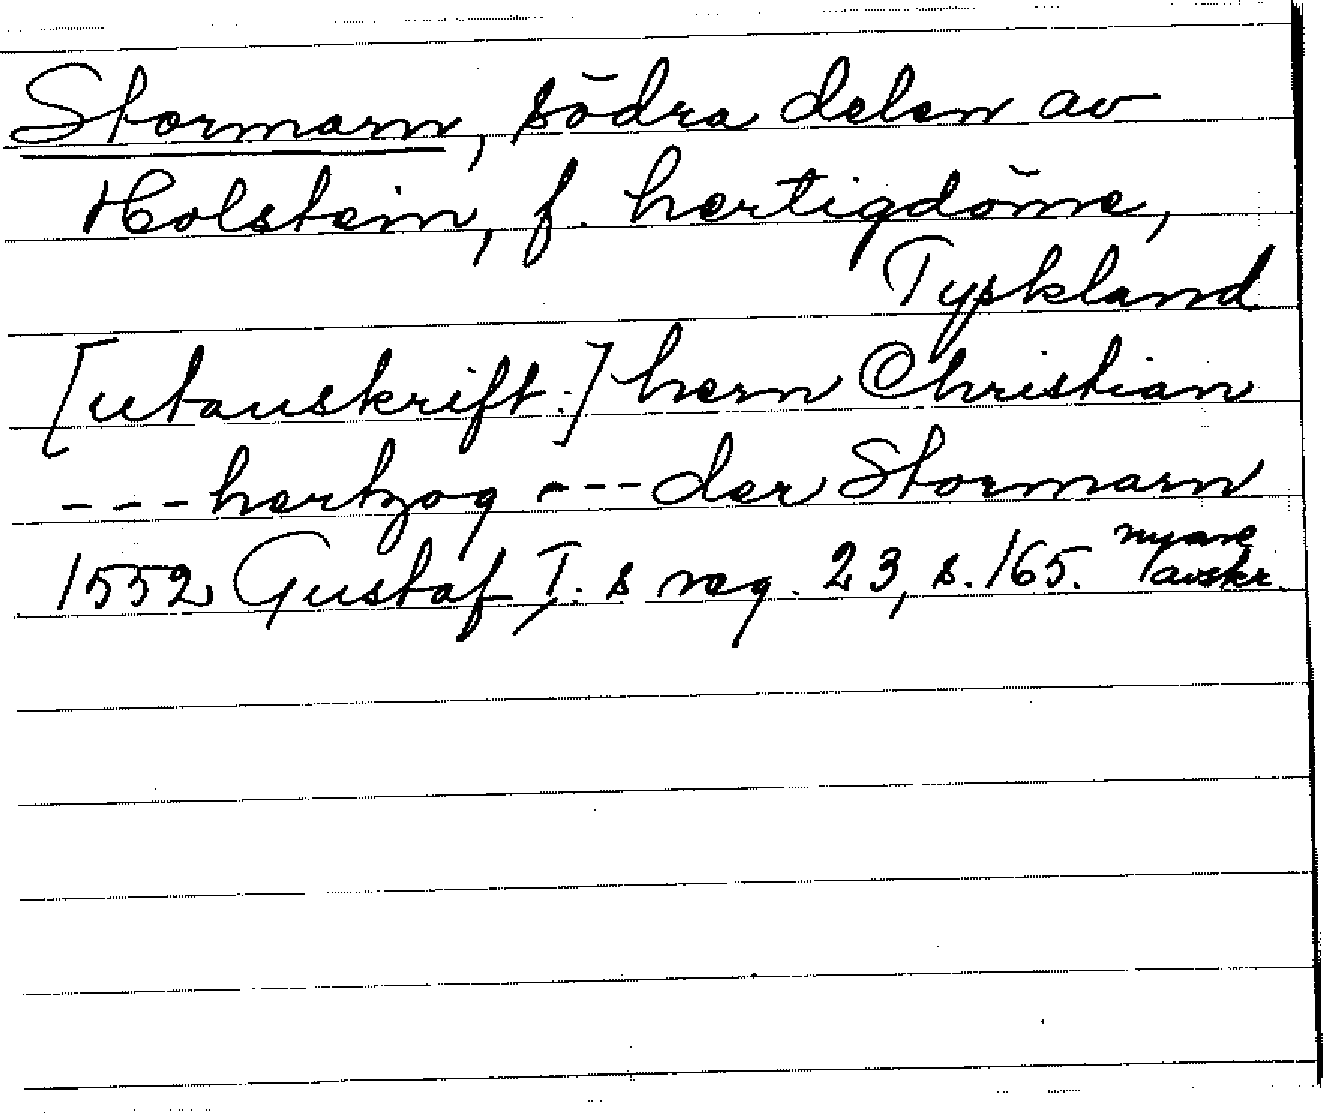 Stormarn, södra delen av
Holstein, f. hertigdöme,
Tyskland
[utanskrift:] hern Christian
--- hertzog --- der Stormarn
1552 Gustaf I:s reg. 23, s. 165. nyare avskr.